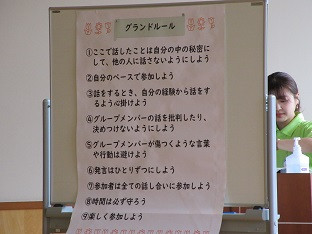 グランドルール
①ここで話したことは自分の中の秘密に
して、他の人に話さないようにしよう
②自分のペースで参加しよう
③話をするとき、自分の経験から話をす
るよう心掛けよう
④グループメンバーの話を批判したり、
決めつけないようにしよう
⑤グループメンバーが傷つくような言葉
や行動は避けよう
⑥発言はひとりずつにしよう
⑦参加者は全ての話し合いに参加しよう
⑧時間は必ず守ろう
⑨楽しく参加しよう